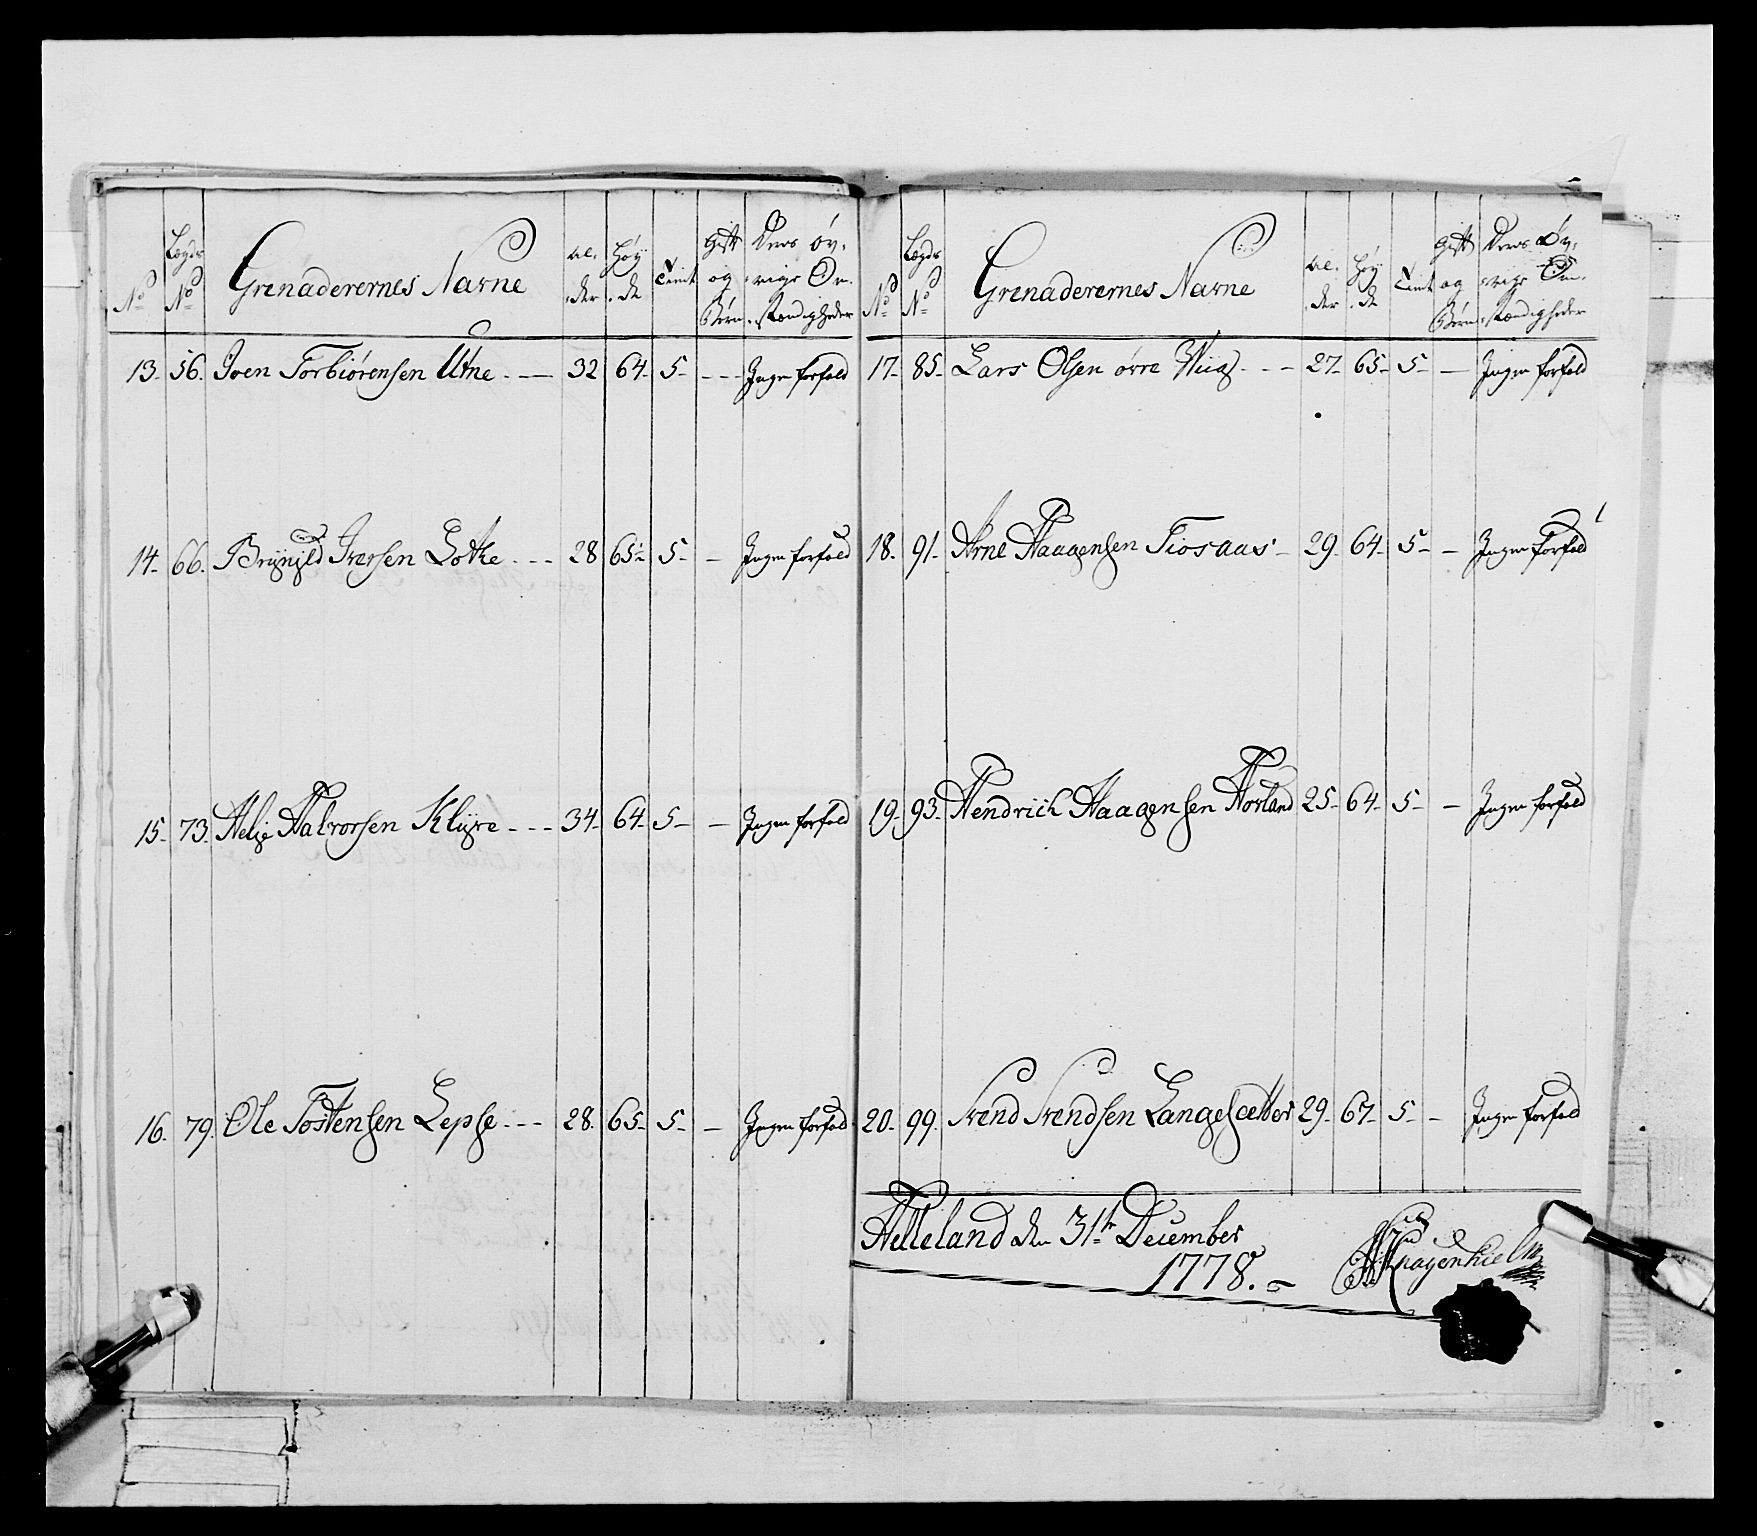 No
Lægds No
Grenaderernes Navne
Al-
der
Høy
de
Tient
Gift
og
Børn
Deres øv-
rige Om-
stændigheder
13. 56. Joen Torbiørensen Utne 32 64 5 Ingen forfald
14. 66. Brynjild Iversen Lothe 28 65 5 Ingen forfald
15. 73. Helje Halvorsen Klyve 34 64 5 Ingen forfald
16. 79. Ole Tostensen Lepse 28 65 5 Ingen forfald
No
Lægds No
Grenaderernes Navne
Al-
der
Høy
de
Tient
Gift
og
Børn
Deres Øv-
rige Om-
stændigheder
17. 85. Lars Olsen øvre Wiig 27 65 5 Ingen forfald
18. 91. Arne Haagensen Tiosaas 29 64 5 Ingen forfald
19. 93. Hendrich Haagensen Hovland 25 64 5 Ingen forfald
20. 99. Svend Svendsen Langesætter 29 67 5 Ingen forfald
Helleland den 31te December
1778.
Kragenhielm